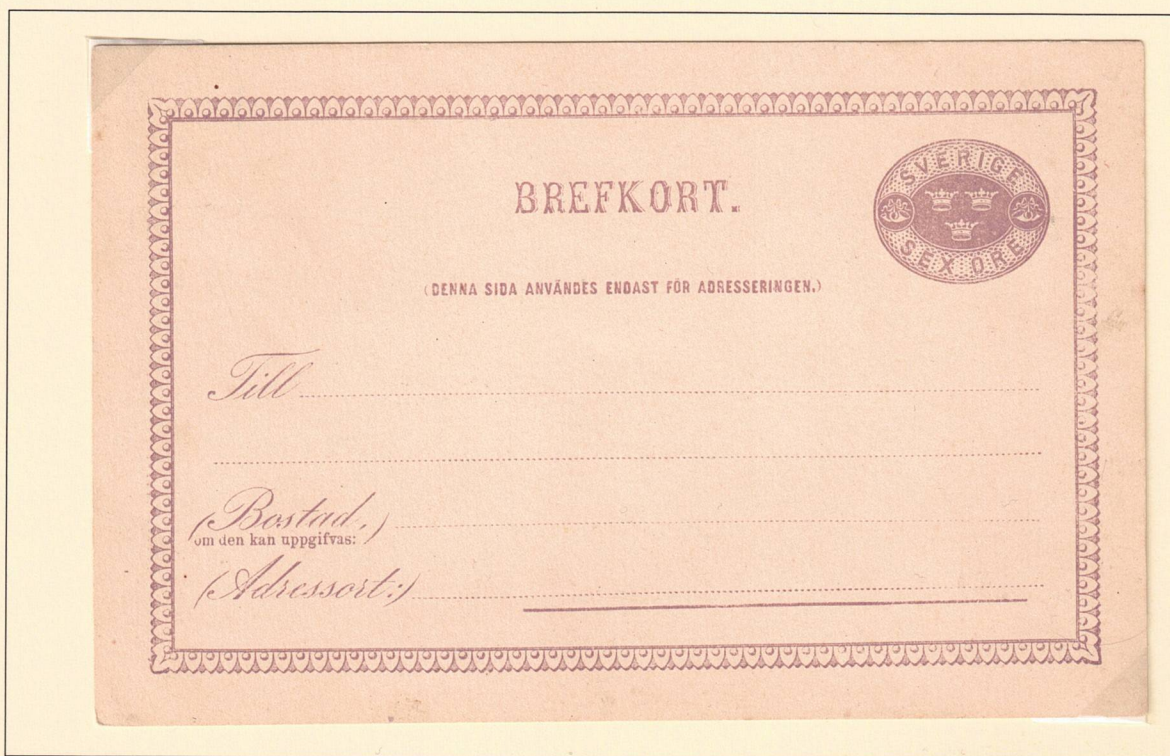 SVERIGE
SEX ÖRE
BREFKORT.
(DENNA SIDA ANVÄNDES ENDAST FÖR ADRESSERINGEN.)
Till
(Bostad,)
om den kan uppgifvas:
(Adressort:)